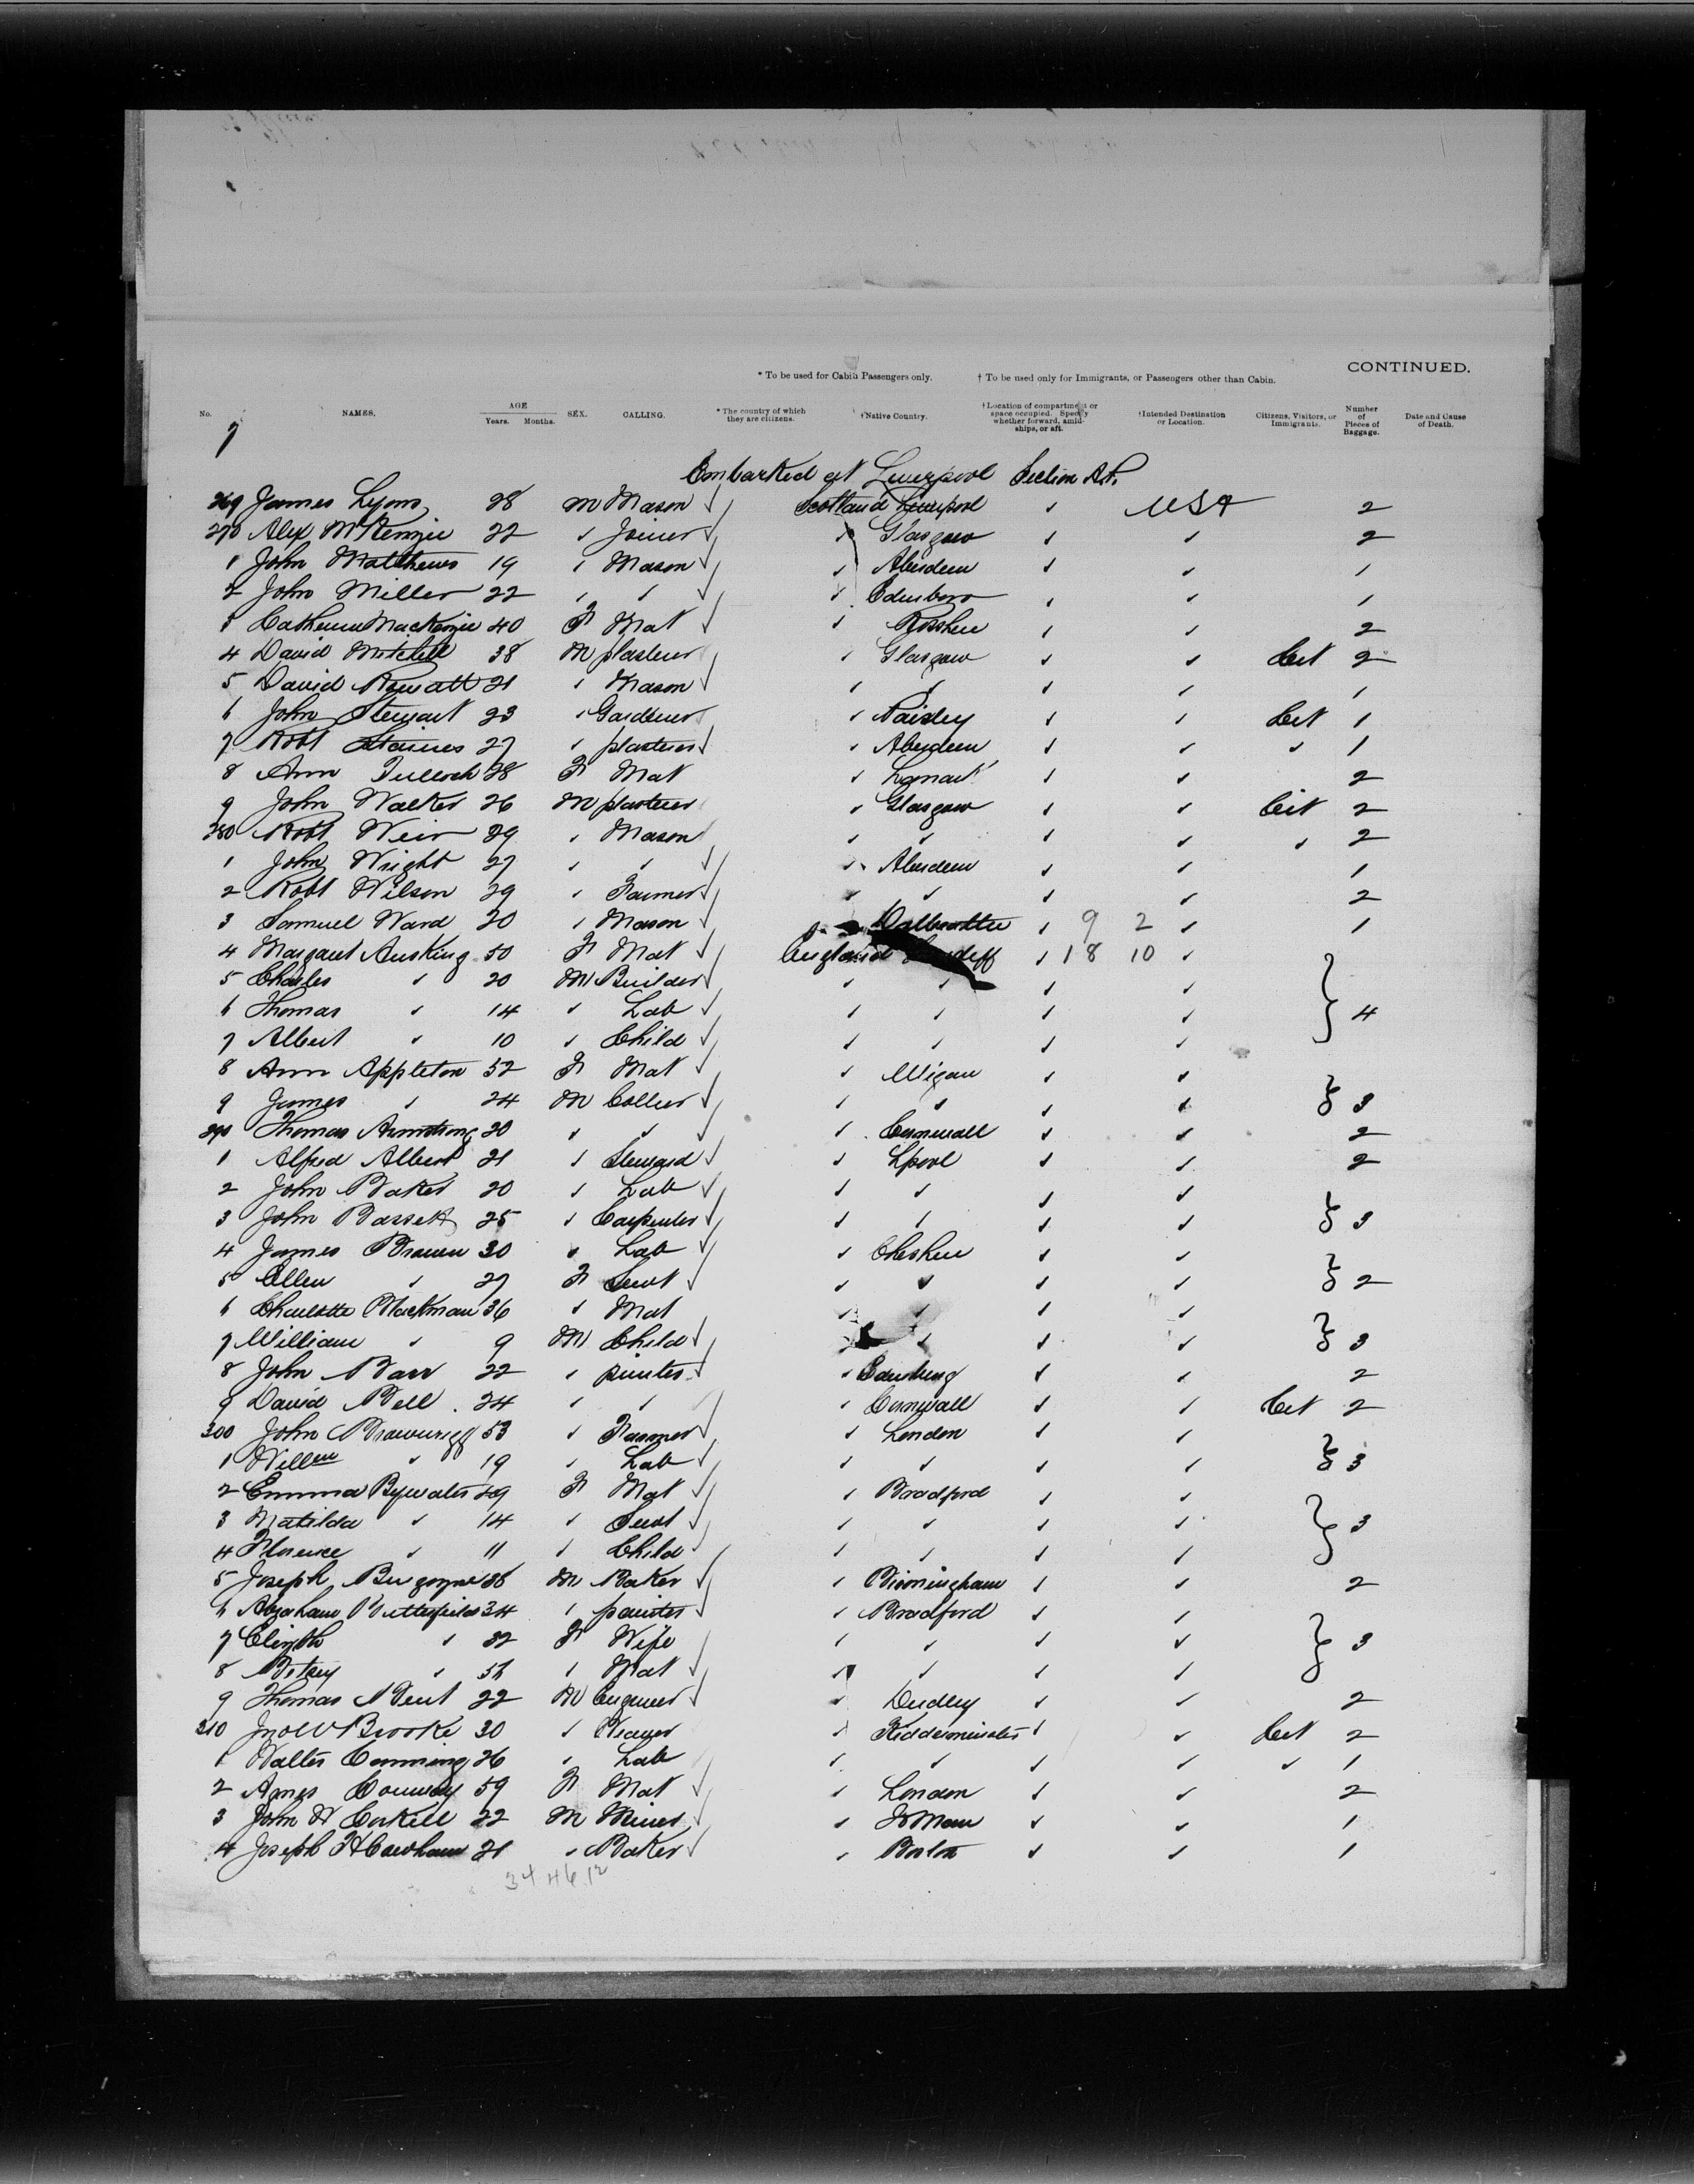 CONTINUED.
* To be used for Cabin Passengers only. † To be used only for Immigrants, or Passengers other than Cabin.
No. NAMES. AGE Years. Months. SEX. CALLING. * The country of which they are citizens. †Native Country. †Location of compartment or space occupied. Specify whether forward, amidships, or aft. †Intended Destination or Location. Citizens, Visitors, or Immigrants. Number of Pieces of Baggage. Date and Cause of Death.
7
Embarked at Liverpool Section Aft.
269 James Lyons 28 M Mason Scotland Liverpool " USA 2
270 Alex McKenzie 22 " Joiner " Glasgow " " 2
1 John Matthews 19 " Mason " Aberdeen " " 1
2 John Miller 22 " " " Edinboro " " 1
3 Catherine MacKenzie 40 F Mat " " " 2
4 David Mitchell 38 M plasterer " Glasgow " " Cit 2
5 David Rowatt 21 " Mason " " " " 1
6 John Stewart 23 " Gardener " Paisley " " Cit 1
7 Robt Staines 27 " plasterer " Aberdeen " " " 1
8 Ann Tulloch 28 F Mat " Lanark " " 2
9 John Walker 26 M plasterer " Glasgow " " Cit 2
280 Robt Weir 29 " Mason " " " " " 2
1 John Wright 27 " " " Aberdeen " " 1
2 Robt Wilson 29 " Farmer " " " " 2
3 Samuel Ward 20 " Mason " Dalbeattie " 9 2 " 1
4 Margaret Ausking 50 F Mat England " 18 10 "
5 Charles " 20 M Builder " " " "
6 Thomas " 14 " Lab " " " " 4
7 Albert " 10 " Child " " " "
8 Ann Appleton 52 F Mat " Wigan " "
9 James " 24 M Collier " " " " 3
290 Thomas Armstrong 20 " " " Cornwall " " 2
1 Alfred Albert 21 " Steward " Lpool " " 2
2 John Baker 20 " Lab " " " "
3 John Bassett 25 " Carpenter " " " " 3
4 James Brown 30 " Lab " Cheshire " "
5 Ellen " 27 F Servt " " " " 2
6 Charlotte Blackman 36 " Mat " " " "
7 William " 9 M Child " " " " 3
8 John Barr 22 " printer " Edinburg " " 2
9 David Bell 24 " " " Cornwall " " Cit 2
300 John Brownrigg 53 " Farmer " London " "
1 Willm " 19 " Lab " " " " 3
2 Emma Bywater 49 F Mat " Bradford " "
3 Matilda " 14 " Servt " " " " 3
4 Florence " 11 " Child " " " "
5 Joseph Burgoyne M Baker " Birmingham " " 2
6 Abraham Butterfield 34 " painter " Bradford " "
7 " 32 F Wife " " " " 3
8 Betsey " " Mat " " " "
9 Thomas Bent 22 M Engineer " Dudley " " 2
310 Jno W Brooke 30 " Weaver " Kidderminster " " Cit 2
1 Walter Cumming 26 " Lab " " " " " 1
2 Agnes Conway 59 F Mat " London " " 2
3 John H Corkill 22 M Miner " IoMan " " 1
4 Joseph H Cawham 21 " Baker " Bolton " " 1
34 46 12